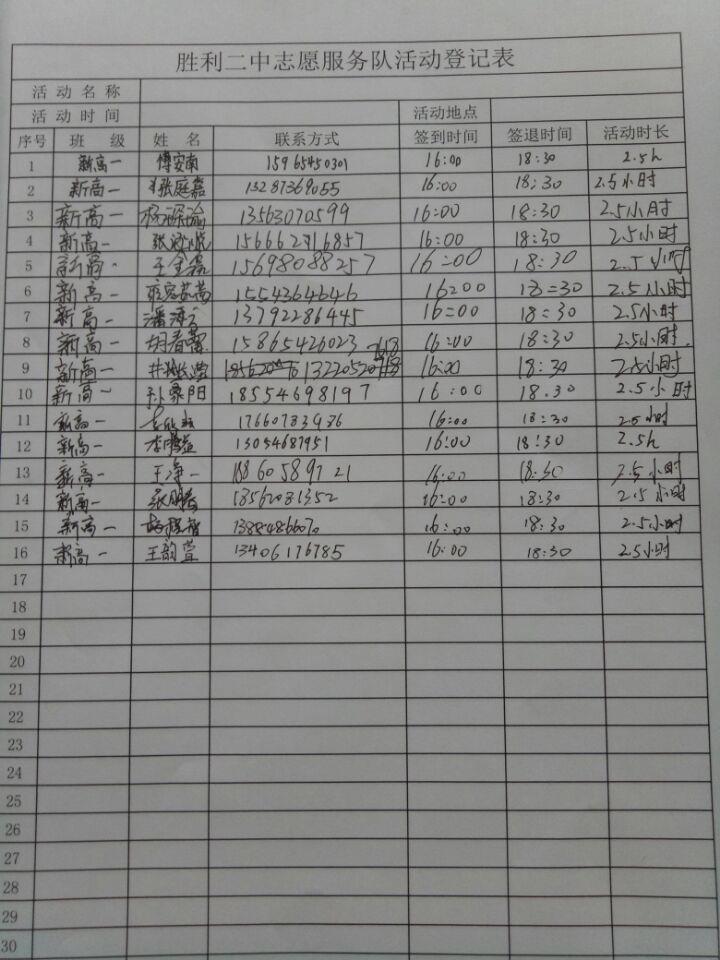 胜利二中志愿服务队活动登记表
活动名称
活动时间 活动地点
序号 班 级 姓 名 联系方式 签到时间 签退时间 活动时长
1 新高一 傅安南 15965450301 16:00 18:30 2.5h
2 新高一 张庭嘉 13287369055 16:00 18:30 2.5小时
3 新高一 13563070599 16:00 18:30 2.5小时
4 新高一 15666 16:00 18:30 2.5小时
5 新高一 王金磊 15698088257 16:00 18:30 2.5小时
6 新高一 1554364646 16:00 18:30 2.5小时
7 新高一 13792286445 16:00 18:30 2.5小时
8 新高一 胡春馨 15865426023 16:00 18:30 2.5小时
9 新高一 16:00 18:30 2.5小时
10 新高一 孙燊阳 18554698197 16:00 18:30 2.5小时
11 新高一 16:00 18:30 2.5小时
12 新高一 李腾益 13054687951 16:00 18:30 2.5h
13 新高一 王净一 18860589721 16:00 18:30 2.5小时
14 新高一 13562031352 16:00 18:30 2.5小时
15 新高一 16:00 18:30 2.5小时
16 新高一 王韵萱 13406176785 16:00 18:30 2.5小时
17
18
19
20
21
22
23
24
25
26
27
28
29
30